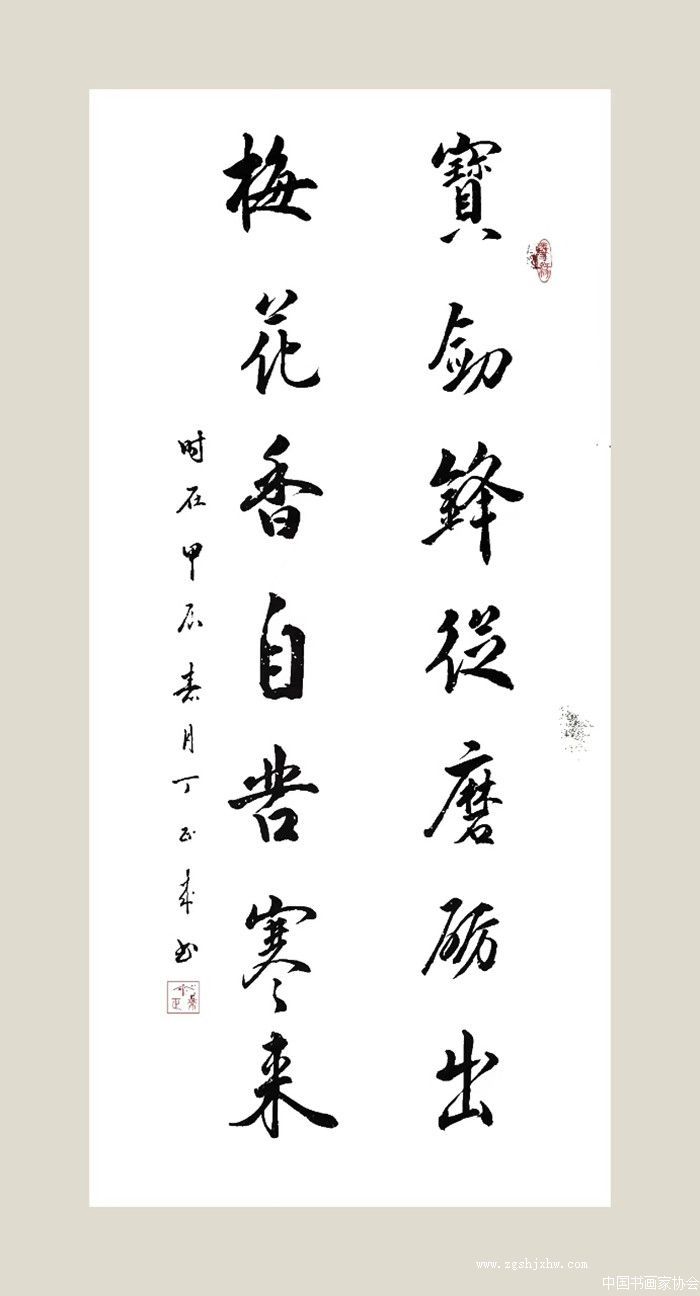 寶劍鋒從磨砺出
梅花香自苦寒来
时在甲辰春月丁正来书
www.zgshjxhw.com
中国书画家协会